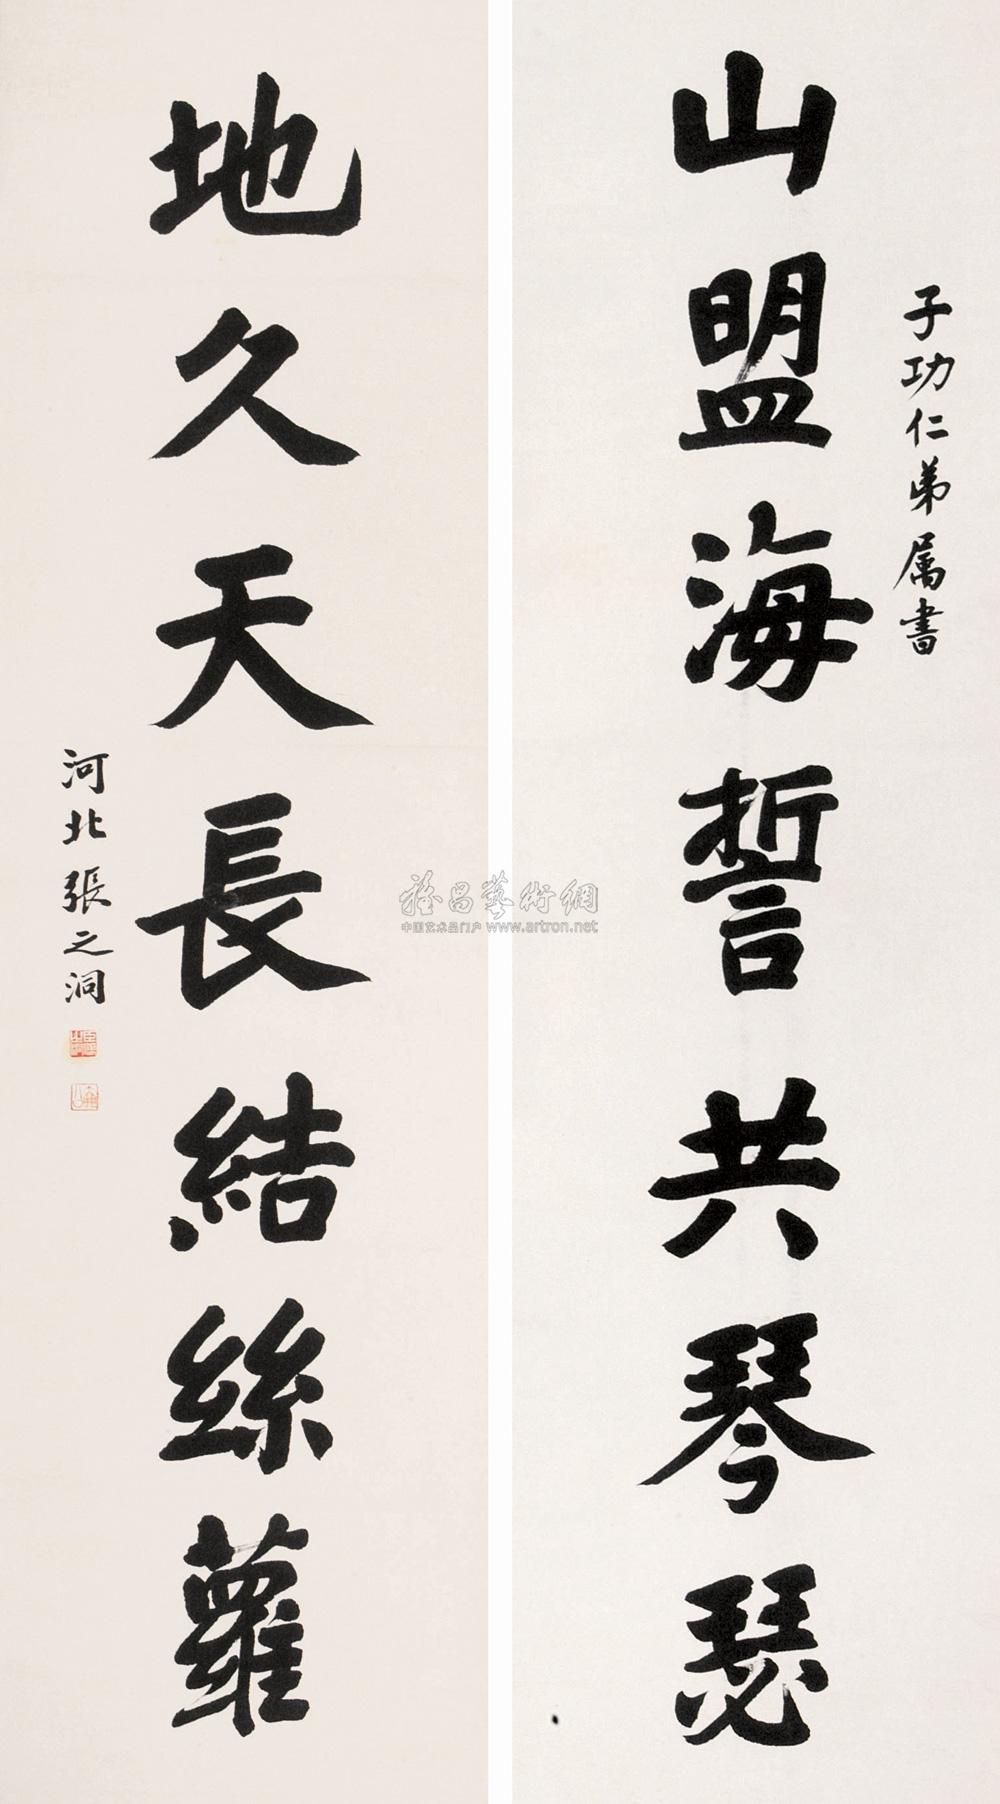 子功仁弟属書
山盟海誓共琴瑟
地久天長結絲蘿
河北張之洞
雅昌藝術網
中国艺术品门户 www.artron.net